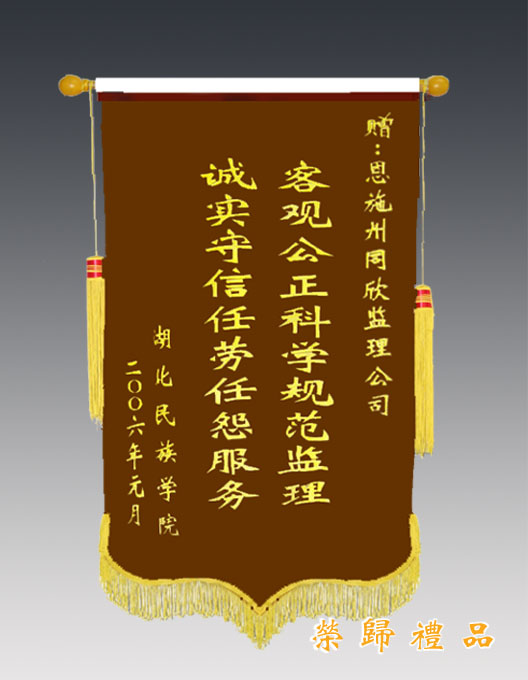 赠：恩施州同欣监理公司
客观公正科学规范监理
诚实守信任劳任怨服务
湖北民族学院
二〇〇六年元月
榮歸禮品